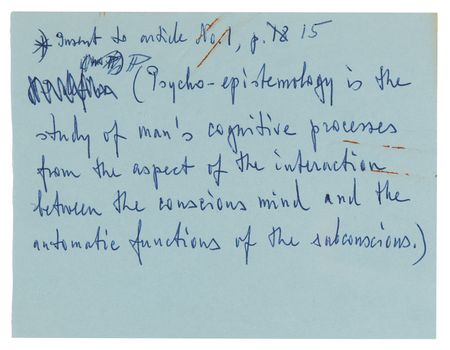 * Insert to article No. 1, p. 15
(Psycho-epistemology is the
study of man's cognitive processes
from the aspect of the interaction
between the conscious mind and the
automatic functions of the subconscious.)